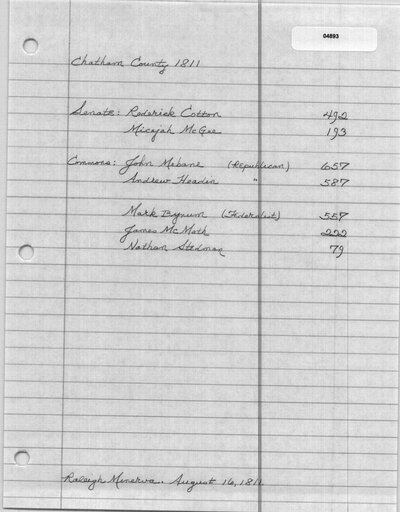 04893
Chatham County 1811
Senate: Roderick Cotton 492
Micajah McGee 193
Commons: John Mebane (Republican) 657
Andrew Headin " 587
Mark Bynum (Federalist) 557
James McMath 222
Nathan Stedman 79
Raleigh Minerva. August 16, 1811.